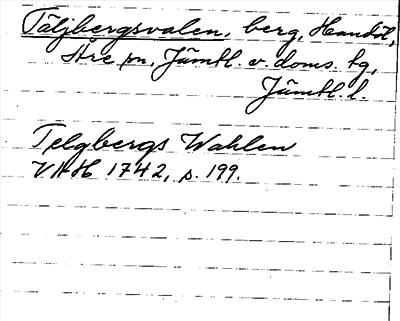 Täljbergsvalen, berg, Handöl,
Åre sn, Jämtl. v. doms. tg,
Jämtl. l.
Telgbergs Wahlen
VAH 1742, s. 199.